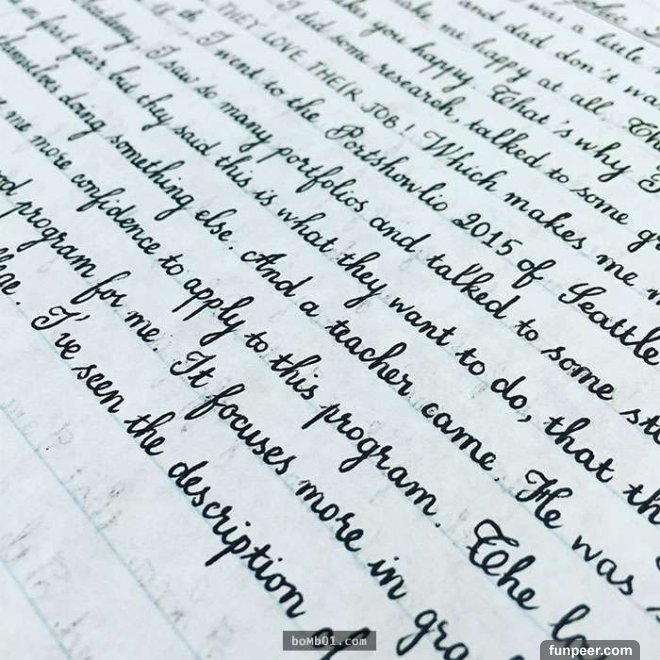 was a little
and dad don't
me happy at all. Th
you happy. That's why I
I did some research, talked to some
THEY LOVE THEIR JOB! Which makes me
I went to the Portshowlio 2015 of Seattle
I saw so many portfolios and talked to some
first year but they said this is what they want to do, that th
themselves doing something else. And a teacher came. He was
me more confidence to apply to this program. The
program for me. It focuses more in
I've seen the description of
boMb01.com
funpeer.com